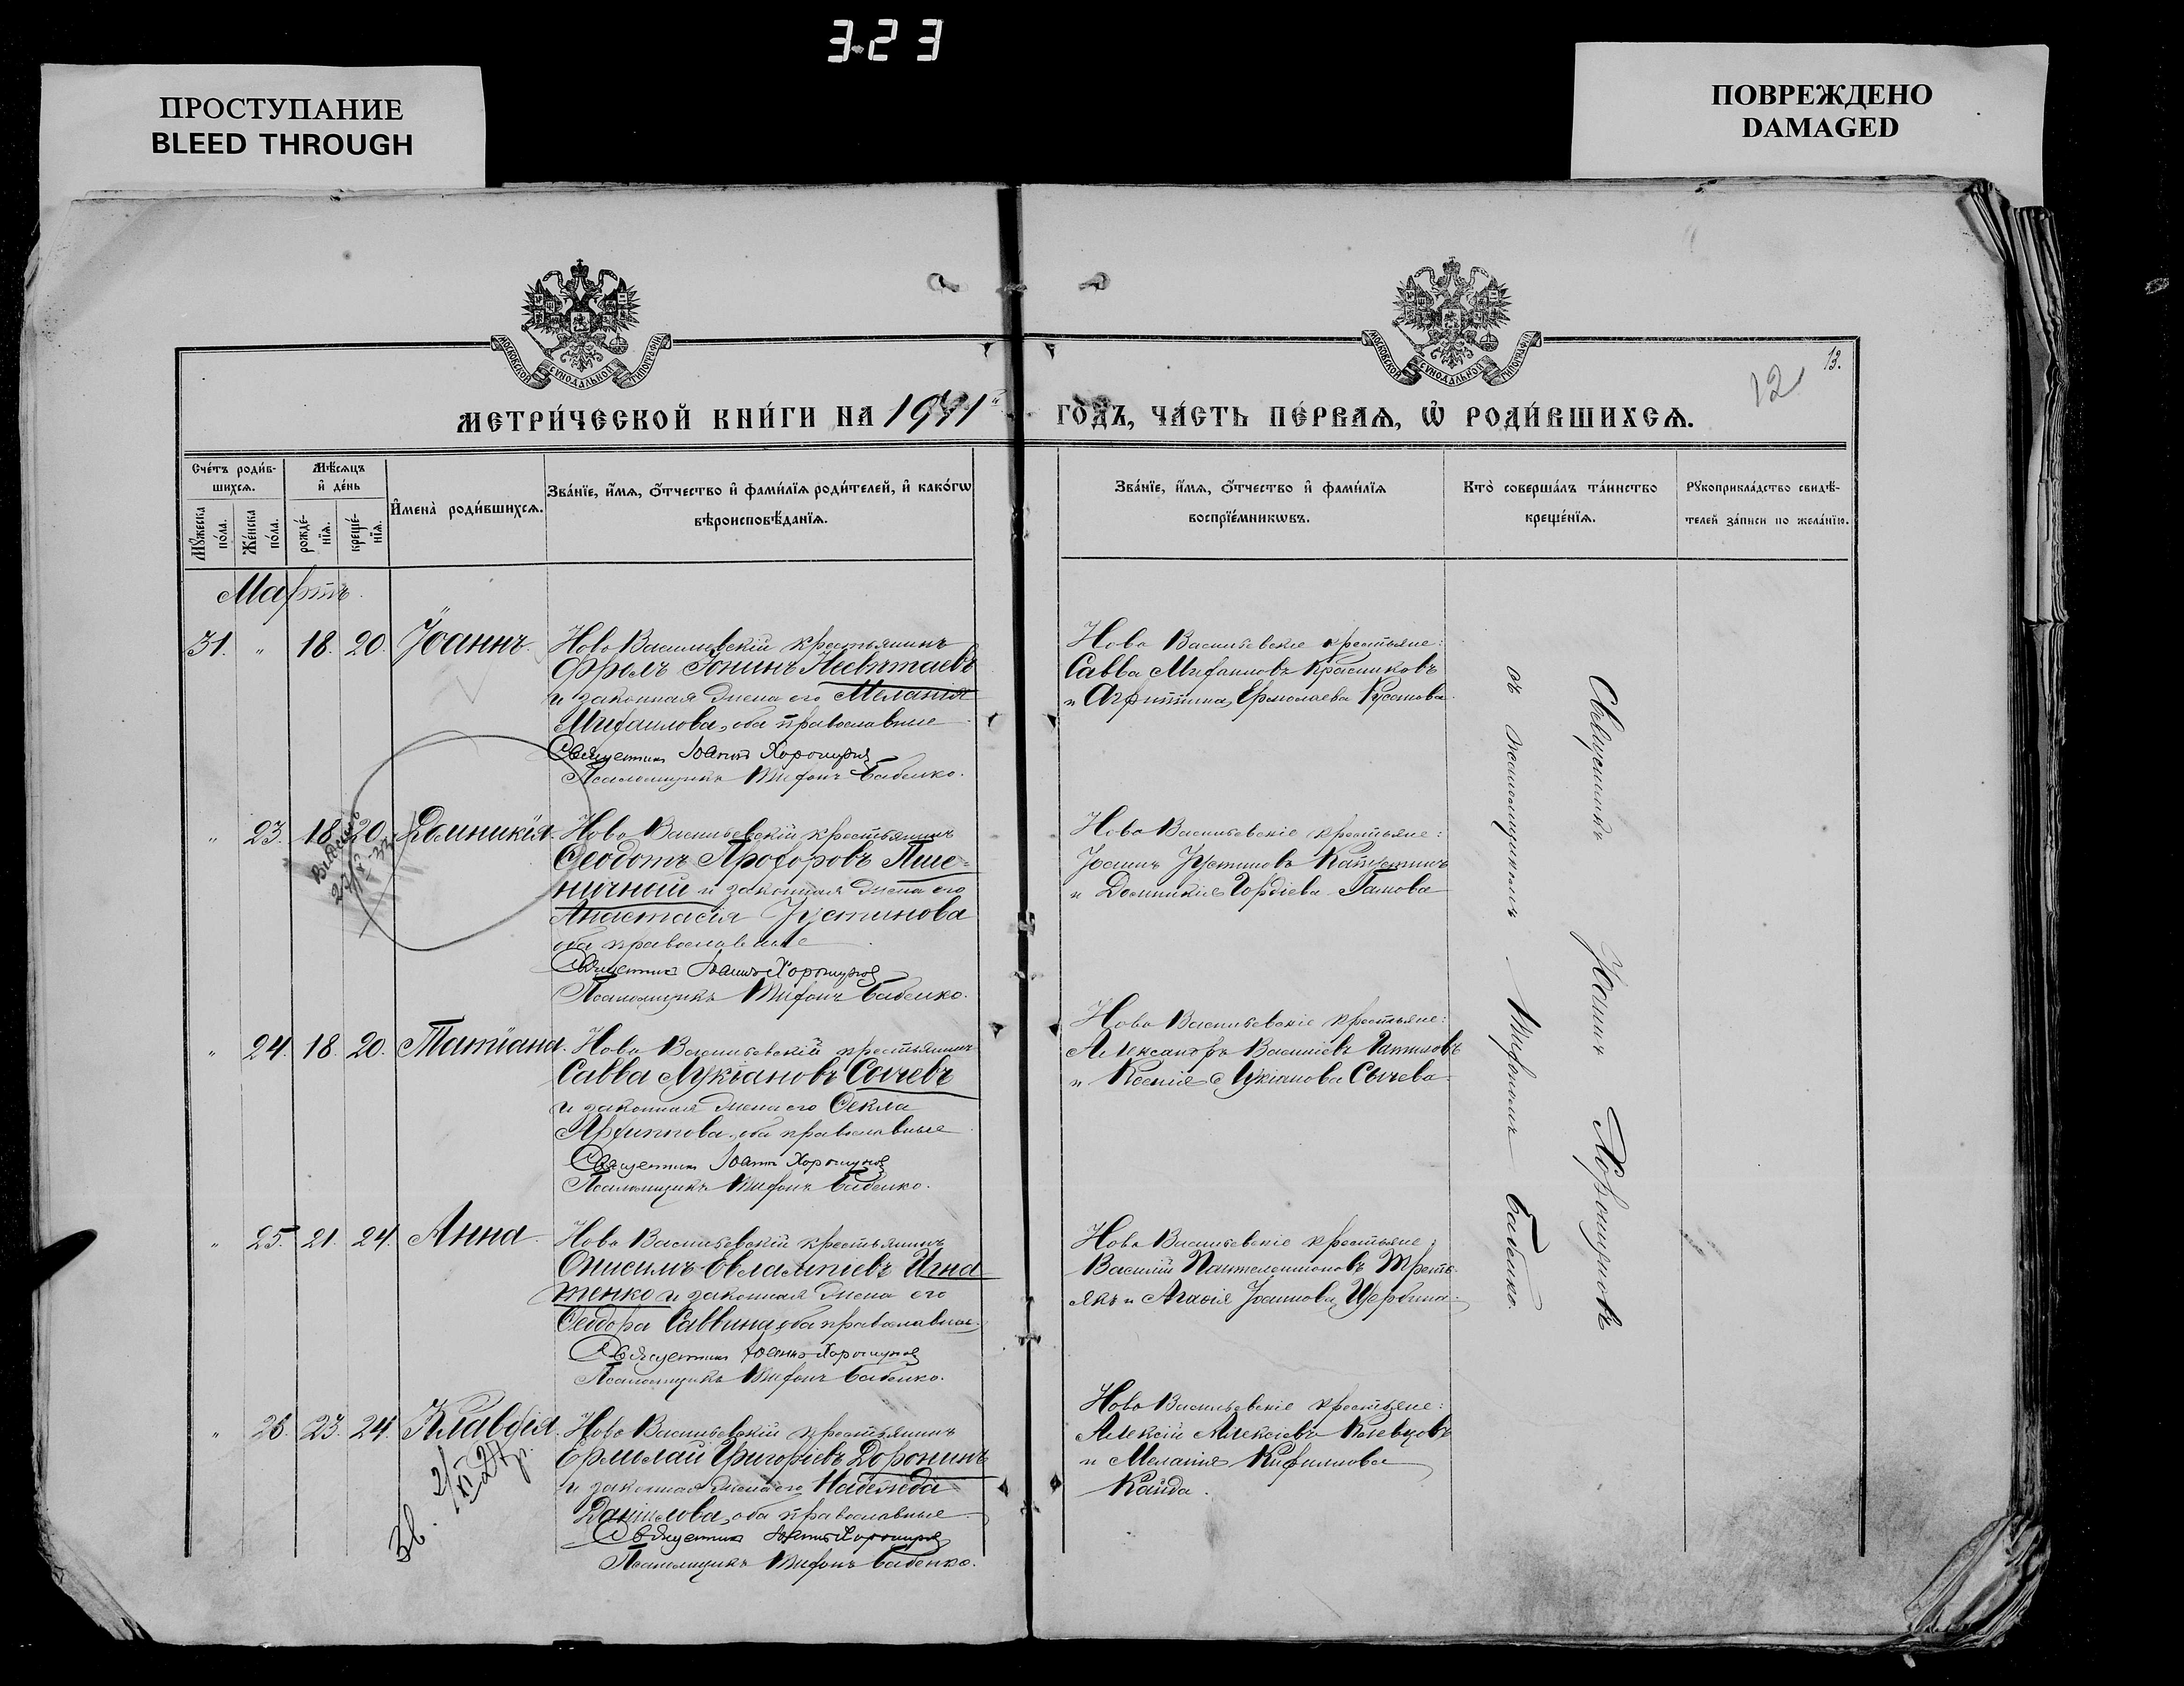 3.23
ПРОСТУПАНИЕ
BLEED THROUGH
ПОВРЕЖДЕНО
DAMAGED
МОСКОВСКОЙ СѴНОДАЛЬНОЙ ТИПОГРАФІИ
МОСКОВСКОЙ СѴНОДАЛЬНОЙ ТИПОГРАФІИ
13.
12
МЕТРИ́ЧЕСКОЙ КНИ́ГИ НА 1911
ГО́ДЪ, ЧА́СТЬ ПЕ́РВАѦ, Ѡ҆ РОДИ́ВШИХСѦ.
Сче́тъ роди́в-
шихсѧ.
Мꙋ́жеска
по́ла.
Же́нска
по́ла.
Мѣ́сѧцъ
и҆ де́нь
рожде́-
нїѧ.
креще́-
нїѧ.
И҆мена̀ роди́вшихсѧ.
Зва́нїе, и҆́мѧ, ѻ҆́тчество и҆ фами́лїѧ роди́телей, и҆ како́гѡ
вѣроисповѣ́данїѧ.
Зва́нїе, и҆́мѧ, ѻ҆́тчество и҆ фами́лїѧ
воспрїе́мникѡвъ.
Кто̀ соверша́лъ та́инство
креще́нїѧ.
Рꙋкоприкла́дство свидѣ́-
телей за́писи по жела́нїю.
Мартъ
31. " 18. 20. Іоаннъ.
Ново Васильевскій крестьянинъ
Іонинъ
и законная жена его Меланія
Михаилова, оба православные
Священникъ Іоаннъ Хорошуновъ
Псаломщикъ Тифонъ Бабенко.
Ново Васильевскіе крестьяне:
Савва Михаиловъ Красниковъ
и Агриппина Ермолаева
" 23. 18. 20. Домникія.
Ново Васильевскій крестьянинъ
Ѳеодотъ Прохоровъ Пше-
ничный и законная жена его
Анастасія Іустинова
оба православные
Священникъ Іоаннъ Хорошуновъ
Псаломщикъ Тифонъ Бабенко.
Ново Васильевскіе крестьяне:
Іоаннъ Іустиновъ Капустинъ
и Домникія Гордіева Панова
" 24. 18. 20. Татіана.
Ново Васильевскій крестьянинъ
Савва Лукіановъ Сычевъ
и законная жена его Ѳекла
Архиппова, оба православные
Священникъ Іоаннъ Хорошуновъ
Псаломщикъ Тифонъ Бабенко.
Ново Васильевскіе крестьяне:
Александръ Василіевъ
и Ксенія Лукіанова Сычева
" 25. 21. 24. Анна
Ново Васильевскій крестьянинъ
Онисимъ Евлампіевъ Игна
тенко и законная жена его
Ѳеодора Саввина, оба православные
Священникъ Іоаннъ Хорошуновъ
Псаломщикъ Тифонъ Бабенко.
Ново Васильевскіе крестьяне:
Василій Пантелеимоновъ Треть
якъ и Агафія Іоаннова Щербина.
" 26. 23. 24. Клавдія.
Ново Васильевскій крестьянинъ
Ермолай Григоріевъ Доронинъ
и законная жена его Надежда
Даніилова, оба православные
Священникъ Іоаннъ Хорошуновъ
Псаломщикъ Тифонъ Бабенко.
Ново Васильевскіе крестьяне:
Алексій Алексіевъ
и Меланія
Кайда.
Священникъ Іоаннъ Хорошуновъ
съ псаломщикомъ Тифономъ Бабенко.